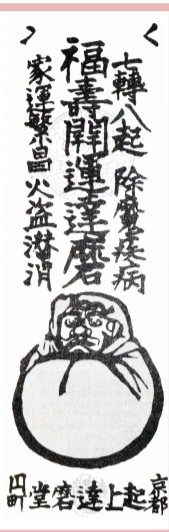 七轉八起 除魔疾病
福壽開運達磨
家運繁昌火盗潜消
京都
起上達磨堂
円町